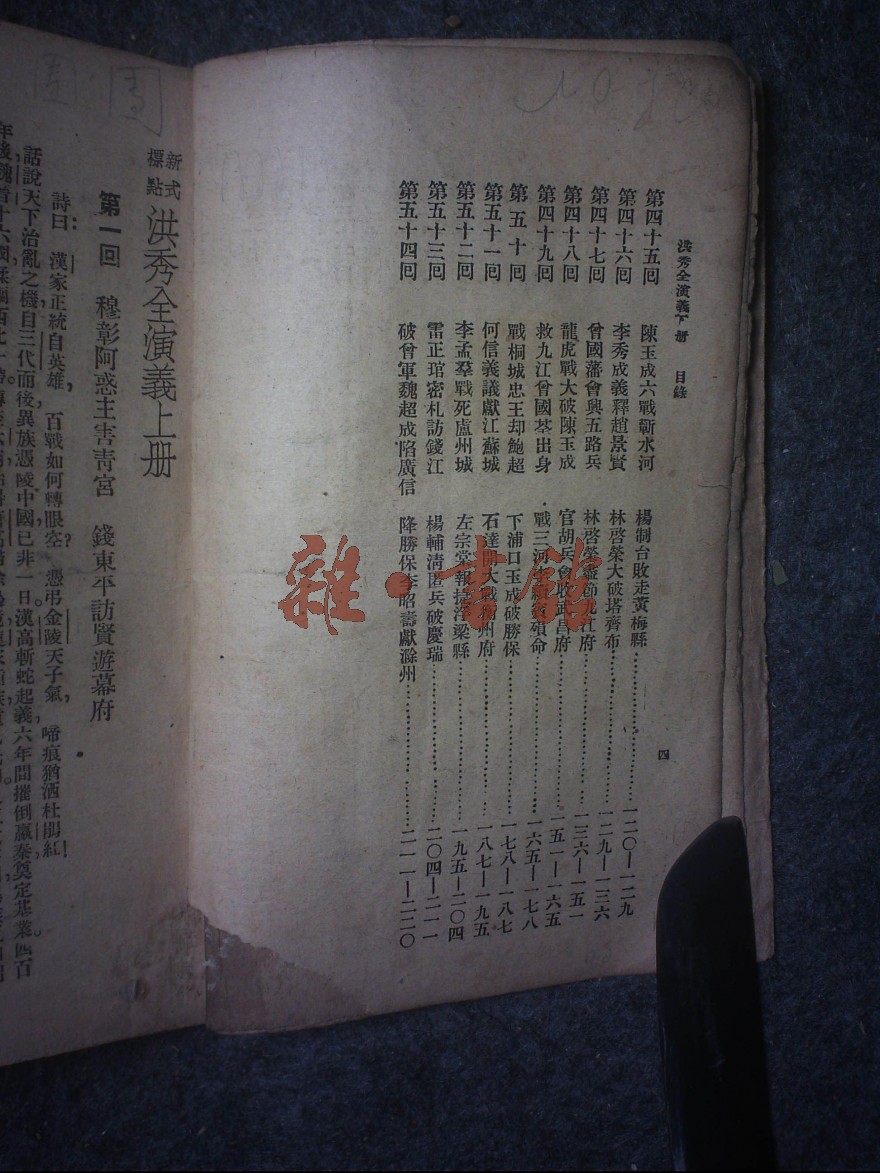 洪秀全演義下册 目錄
四
第四十五回 陳玉成六戰蘄水河 楊制台敗走黃梅縣……一二〇—一二九
第四十六回 李秀成義釋趙景賢 林啓榮大破塔齊布……一二九—一三六
第四十七回 曾國藩會興五路兵 林啓榮盡節江府……一三六—一五一
第四十八回 龍虎戰大破陳玉成 官胡兵會收武昌府……一五一—一六五
第四十九回 救九江曾國荃出身 戰三河殞命……一六五—一七八
第五十回 戰桐城忠王却鮑超 下浦口玉成破勝保……一七八—一八七
第五十一回 何信義議獻江蘇城 石達開大戰州府……一八七—一九五
第五十二回 李孟羣戰死盧州城 左宗棠報捷浮梁縣……一九五—二〇四
第五十三回 雷正琯密札訪錢江 楊輔淸匿兵破慶瑞……二〇四—二一一
第五十四回 破曾軍魏超成陷廣信 降勝保李昭壽獻滁州……二一一—二二〇
新式標點 洪秀全演義上册
第一回 穆彰阿惑主害靑宮 錢東平訪賢遊幕府
詩曰：漢家正統自英雄，百戰如何轉眼空？憑弔金陵天子氣，啼痕猶洒杜鵑紅
話說天下治亂之機，自三代而後，異族憑陵中國，已非一日。漢高斬蛇起義，六年間摧倒嬴秦，奠定基業。四百
雜·書館